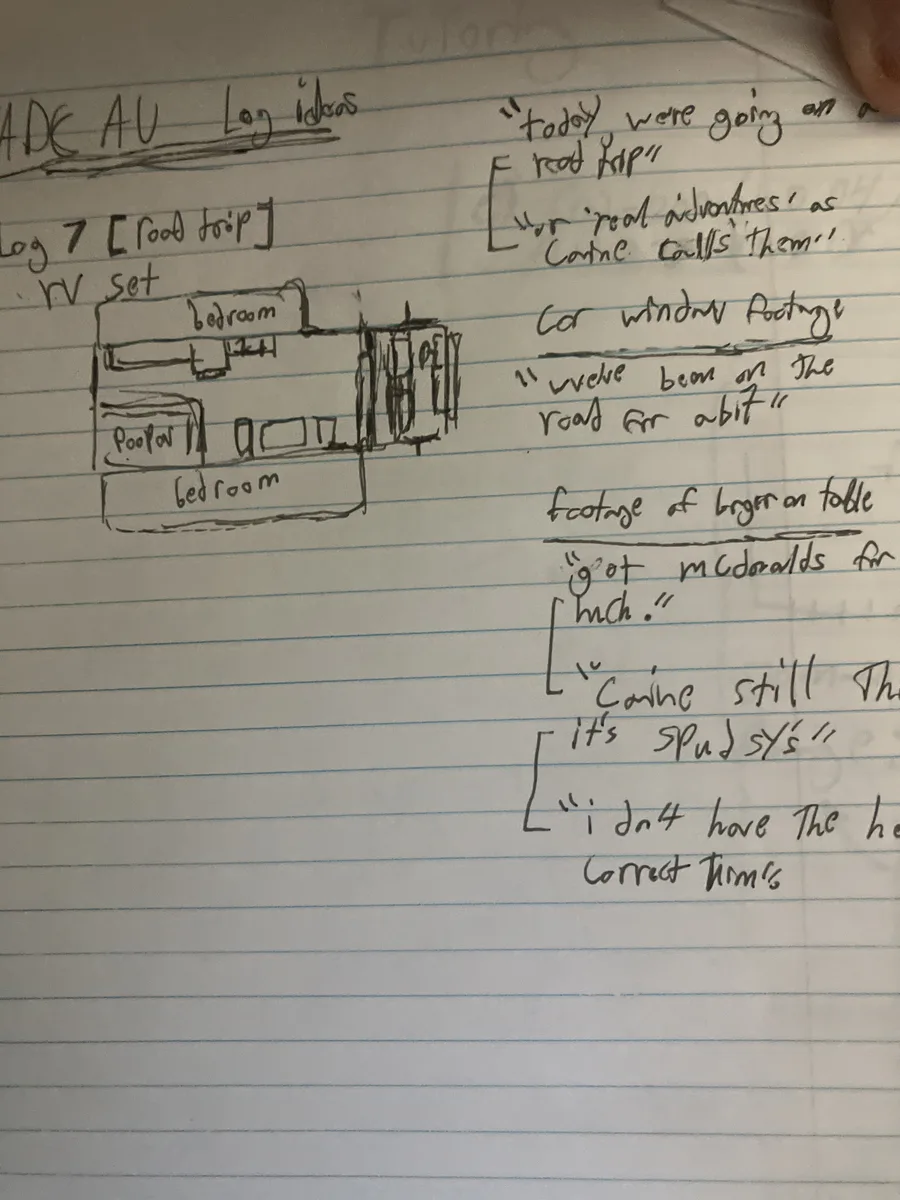 ADC AU Log ideas
Log 7 [road trip]
rv set
bedroom
bedroom
"today, were going on a
road trip"
"or 'real adventures' as
Caine calls them"
Car window footage
"weve been on the
road for abit"
footage of burger on table
"got mcdonalds for
lunch."
"Caine still Th
it's spudsy's"
"i dn't have the he
correct him"